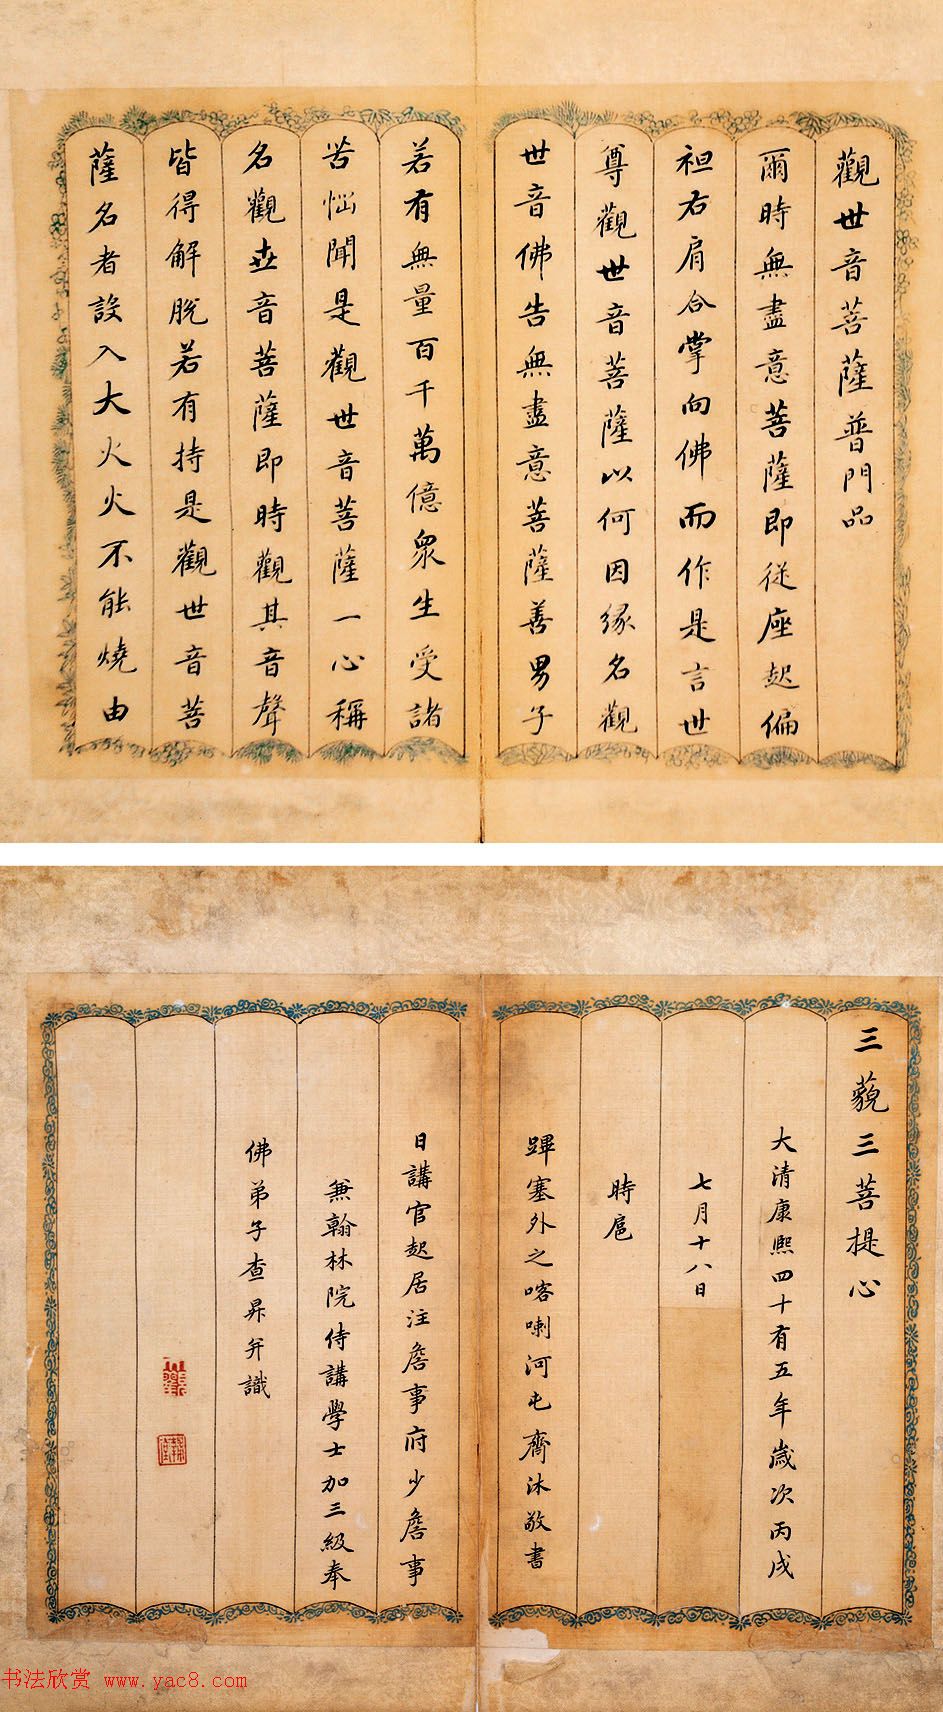 觀世音菩薩普門品
爾時無盡意菩薩即從座起偏
袒右肩合掌向佛而作是言世
尊觀世音菩薩以何因緣名觀
世音佛告無盡意菩薩善男子
若有無量百千萬億眾生受諸
苦惱聞是觀世音菩薩一心稱
名觀世音菩薩即時觀其音聲
皆得解脫若有持是觀世音菩
薩名者設入大火火不能燒由
三藐三菩提心
大清康熙四十有五年歲次丙戌
七月十八日
時扈
蹕塞外之喀喇河屯齋沐敬書
日講官起居注詹事府少詹事
兼翰林院侍講學士加三級奉
佛弟子查昇弁識
书法欣赏 www.yac8.com